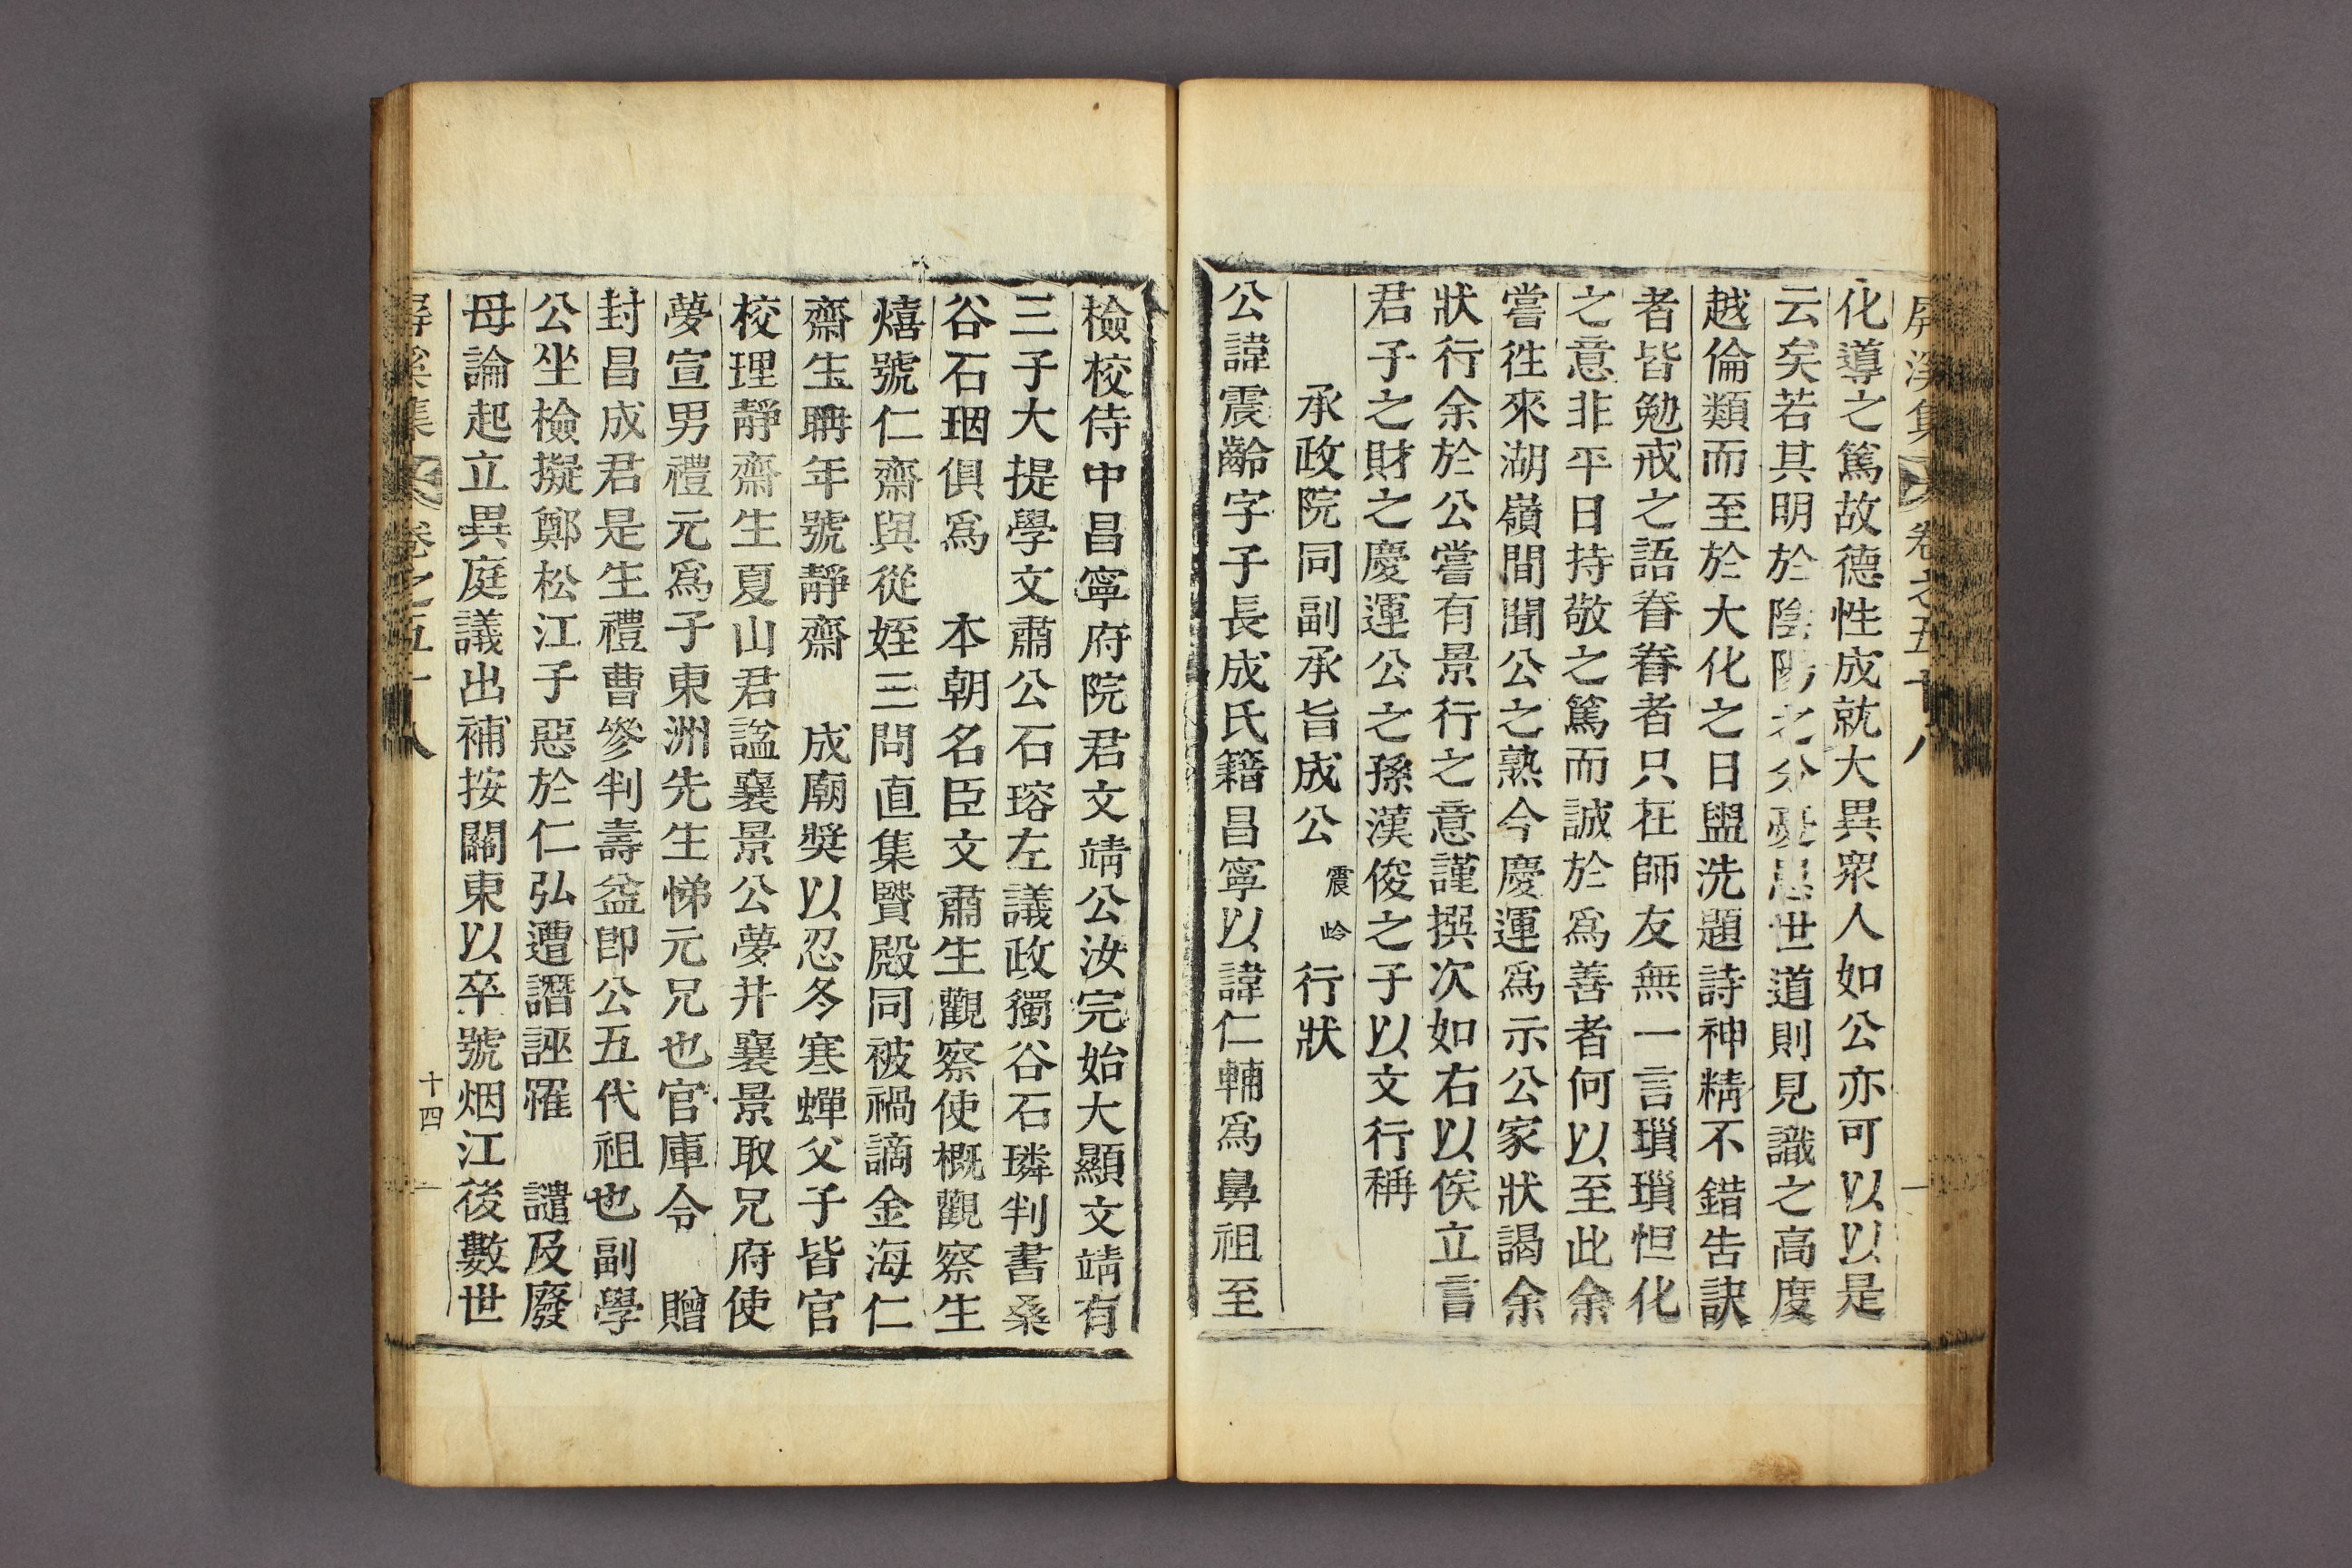 屛溪集 卷之五十八
化導之篤故德性成就大異衆人如公亦可以以是
云矣若其明於陰陽之分憂思世道則見識之高度
越倫類而至於大化之日盥洗題詩神精不錯告訣
者皆勉戒之語眷眷者只在師友無一言瑣瑣怛化
之意非平日持敬之篤而誠於爲善者何以至此余
嘗徃來湖嶺間聞公之熟今慶運爲示公家狀謁余
狀行余於公嘗有景行之意謹撰次如右以俟立言
君子之財之慶運公之孫漢俊之子以文行稱
承政院同副承旨成公震岭行狀
公諱震齡字子長成氏籍昌寧以諱仁輔爲鼻祖至
檢校侍中昌寧府院君文靖公汝完始大顯文靖有
三子大提學文肅公石瑢左議政獨谷石璘判書桑
谷石珚俱爲 本朝名臣文肅生觀察使槪觀察生
熺號仁齋與從姪三問直集賢殿同被禍謫金海仁
齋生聃年號靜齋 成廟奬以忍冬寒蟬父子皆官
校理靜齋生夏山君謚襄景公夢井襄景取兄府使
夢宣男禮元爲子東洲先生悌元兄也官庫令 贈
封昌成君是生禮曹參判壽益卽公五代祖也副學
公坐檢擬鄭松江子惡於仁弘遭譖誣罹 譴及廢
母論起立異庭議出補按關東以卒號烟江後數世
屛溪集 卷之五十八 十四